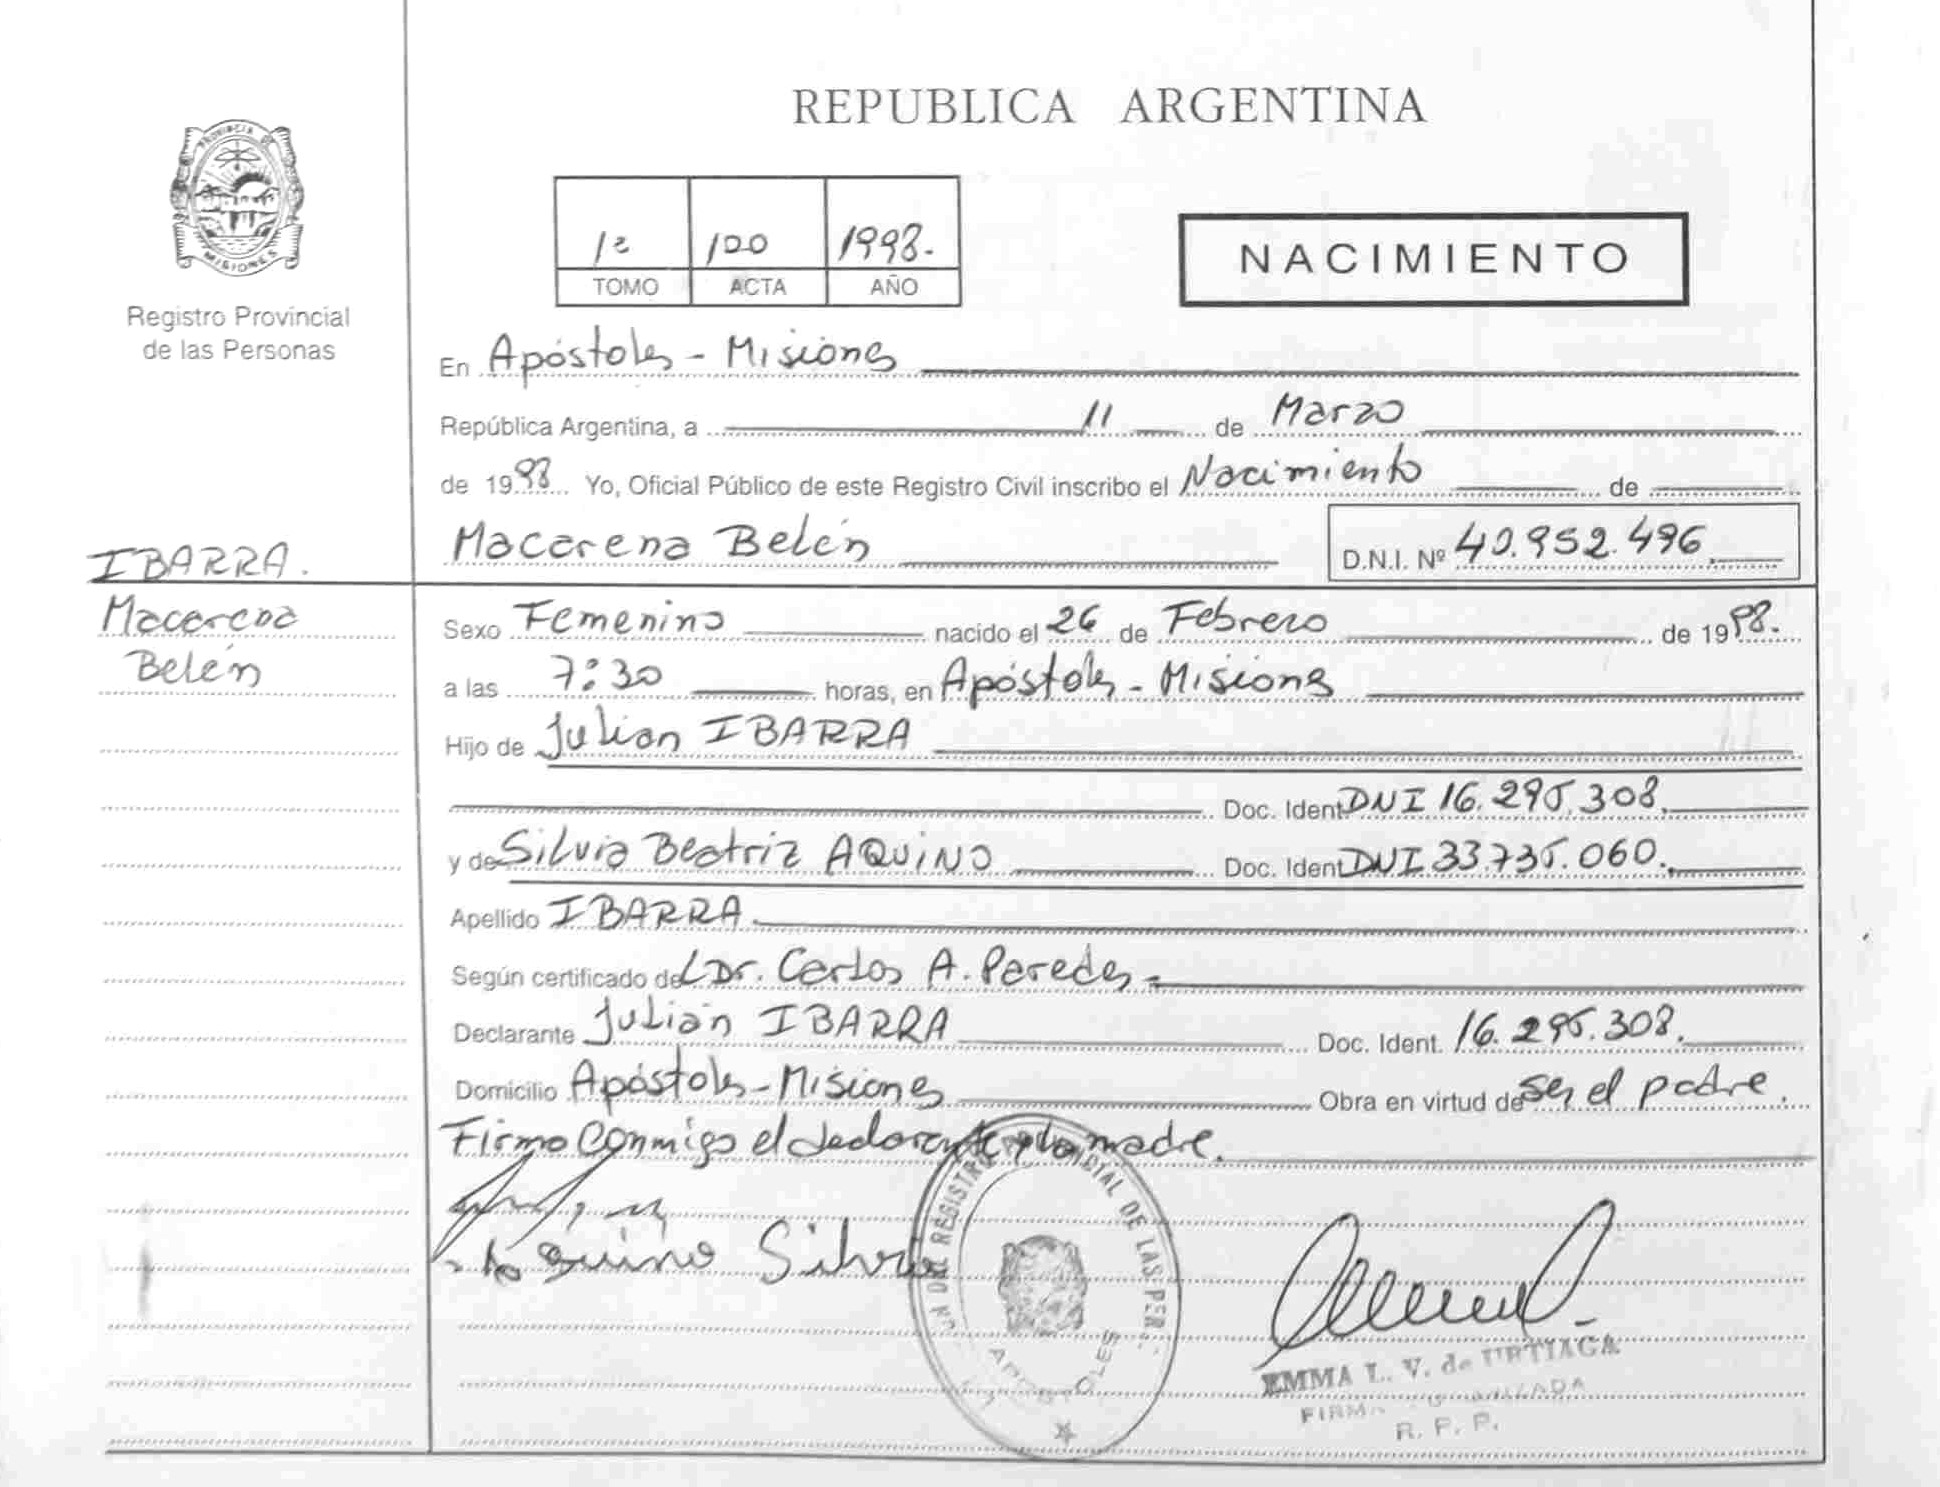 PROVINCIA DE
MISIONES
Registro Provincial
de las Personas
REPUBLICA ARGENTINA
1º 120 1998.
TOMO ACTA AÑO
NACIMIENTO
En Apóstoles - Misiones
República Argentina, a 11 de Marzo
de 1998 Yo, Oficial Público de este Registro Civil inscribo el Nacimiento de
Macarena Belén D.N.I. Nº 40.952.496
IBARRA.
Macarena
Belén
Sexo Femenino nacido el 26 de Febrero de 1998.
a las 7:30 horas, en Apóstoles - Misiones
Hijo de Julian IBARRA
Doc. Ident DNI 16.295.308.
y de Silvia Beatriz AQUINO Doc. Ident DNI 33.735.060.
Apellido IBARRA.
Según certificado del Dr. Carlos A. Paredes -
Declarante Julián IBARRA Doc. Ident. 16.295.308.
Domicilio Apóstoles - Misiones Obra en virtud de ser el padre.
Firma conmigo el declarante y la madre.
Aquino Silvia
REGISTRO PROVINCIAL DE LAS PER.
APOSTOLES
EMMA L. V. de URTIAGA
FIRMA
R. P. P.